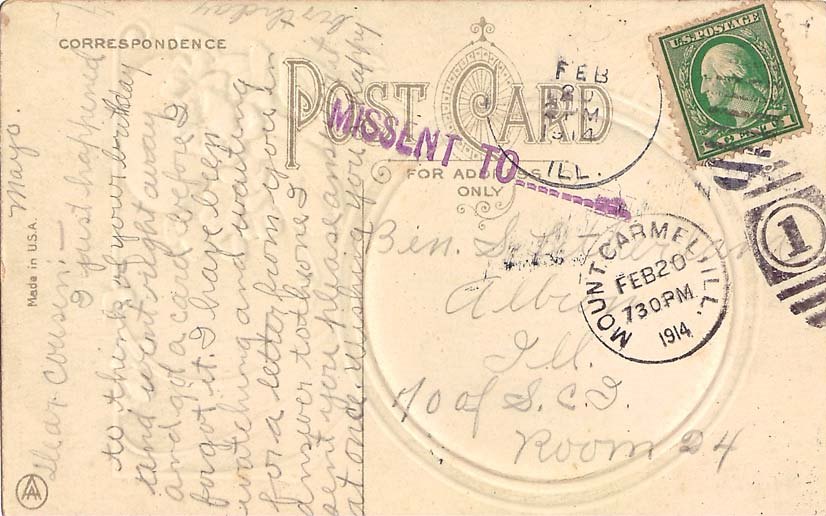 CORRESPONDENCE
POST CARD
FOR ADDRESS
ONLY
U.S. POSTAGE
1 CENT 1
FEB
1914
ILL.
MISSENT TO
MOUNT CARMEL, ILL.
FEB 20
730 PM
1914
1
Made in U.S.A.
Dear cousin:—
I just happened
to think of your birthday
and went right away
and got a card before I
forgot it. I have been
watching and waiting
for a letter from you in
answer to the one I
sent you please answer it
at once. Wishing you a happy
birthday
Mayo.
Ben. S.
Albion
Ill.
% of S. C. I.
Room 24